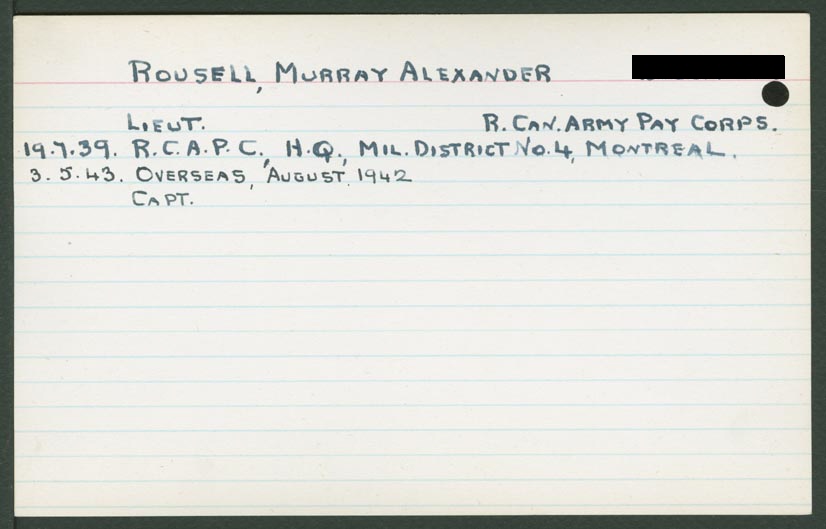 ROUSELL, MURRAY ALEXANDER
LIEUT. R. CAN. ARMY PAY CORPS.
19.7.39. R.C.A.P.C., H.Q., MIL. DISTRICT No. 4, MONTREAL.
3.5.43. OVERSEAS, AUGUST 1942
CAPT.